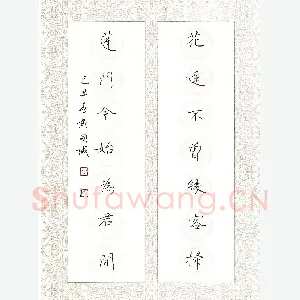 花逕不曾緣客掃
蓬門今始為君開
Shufawang.cn